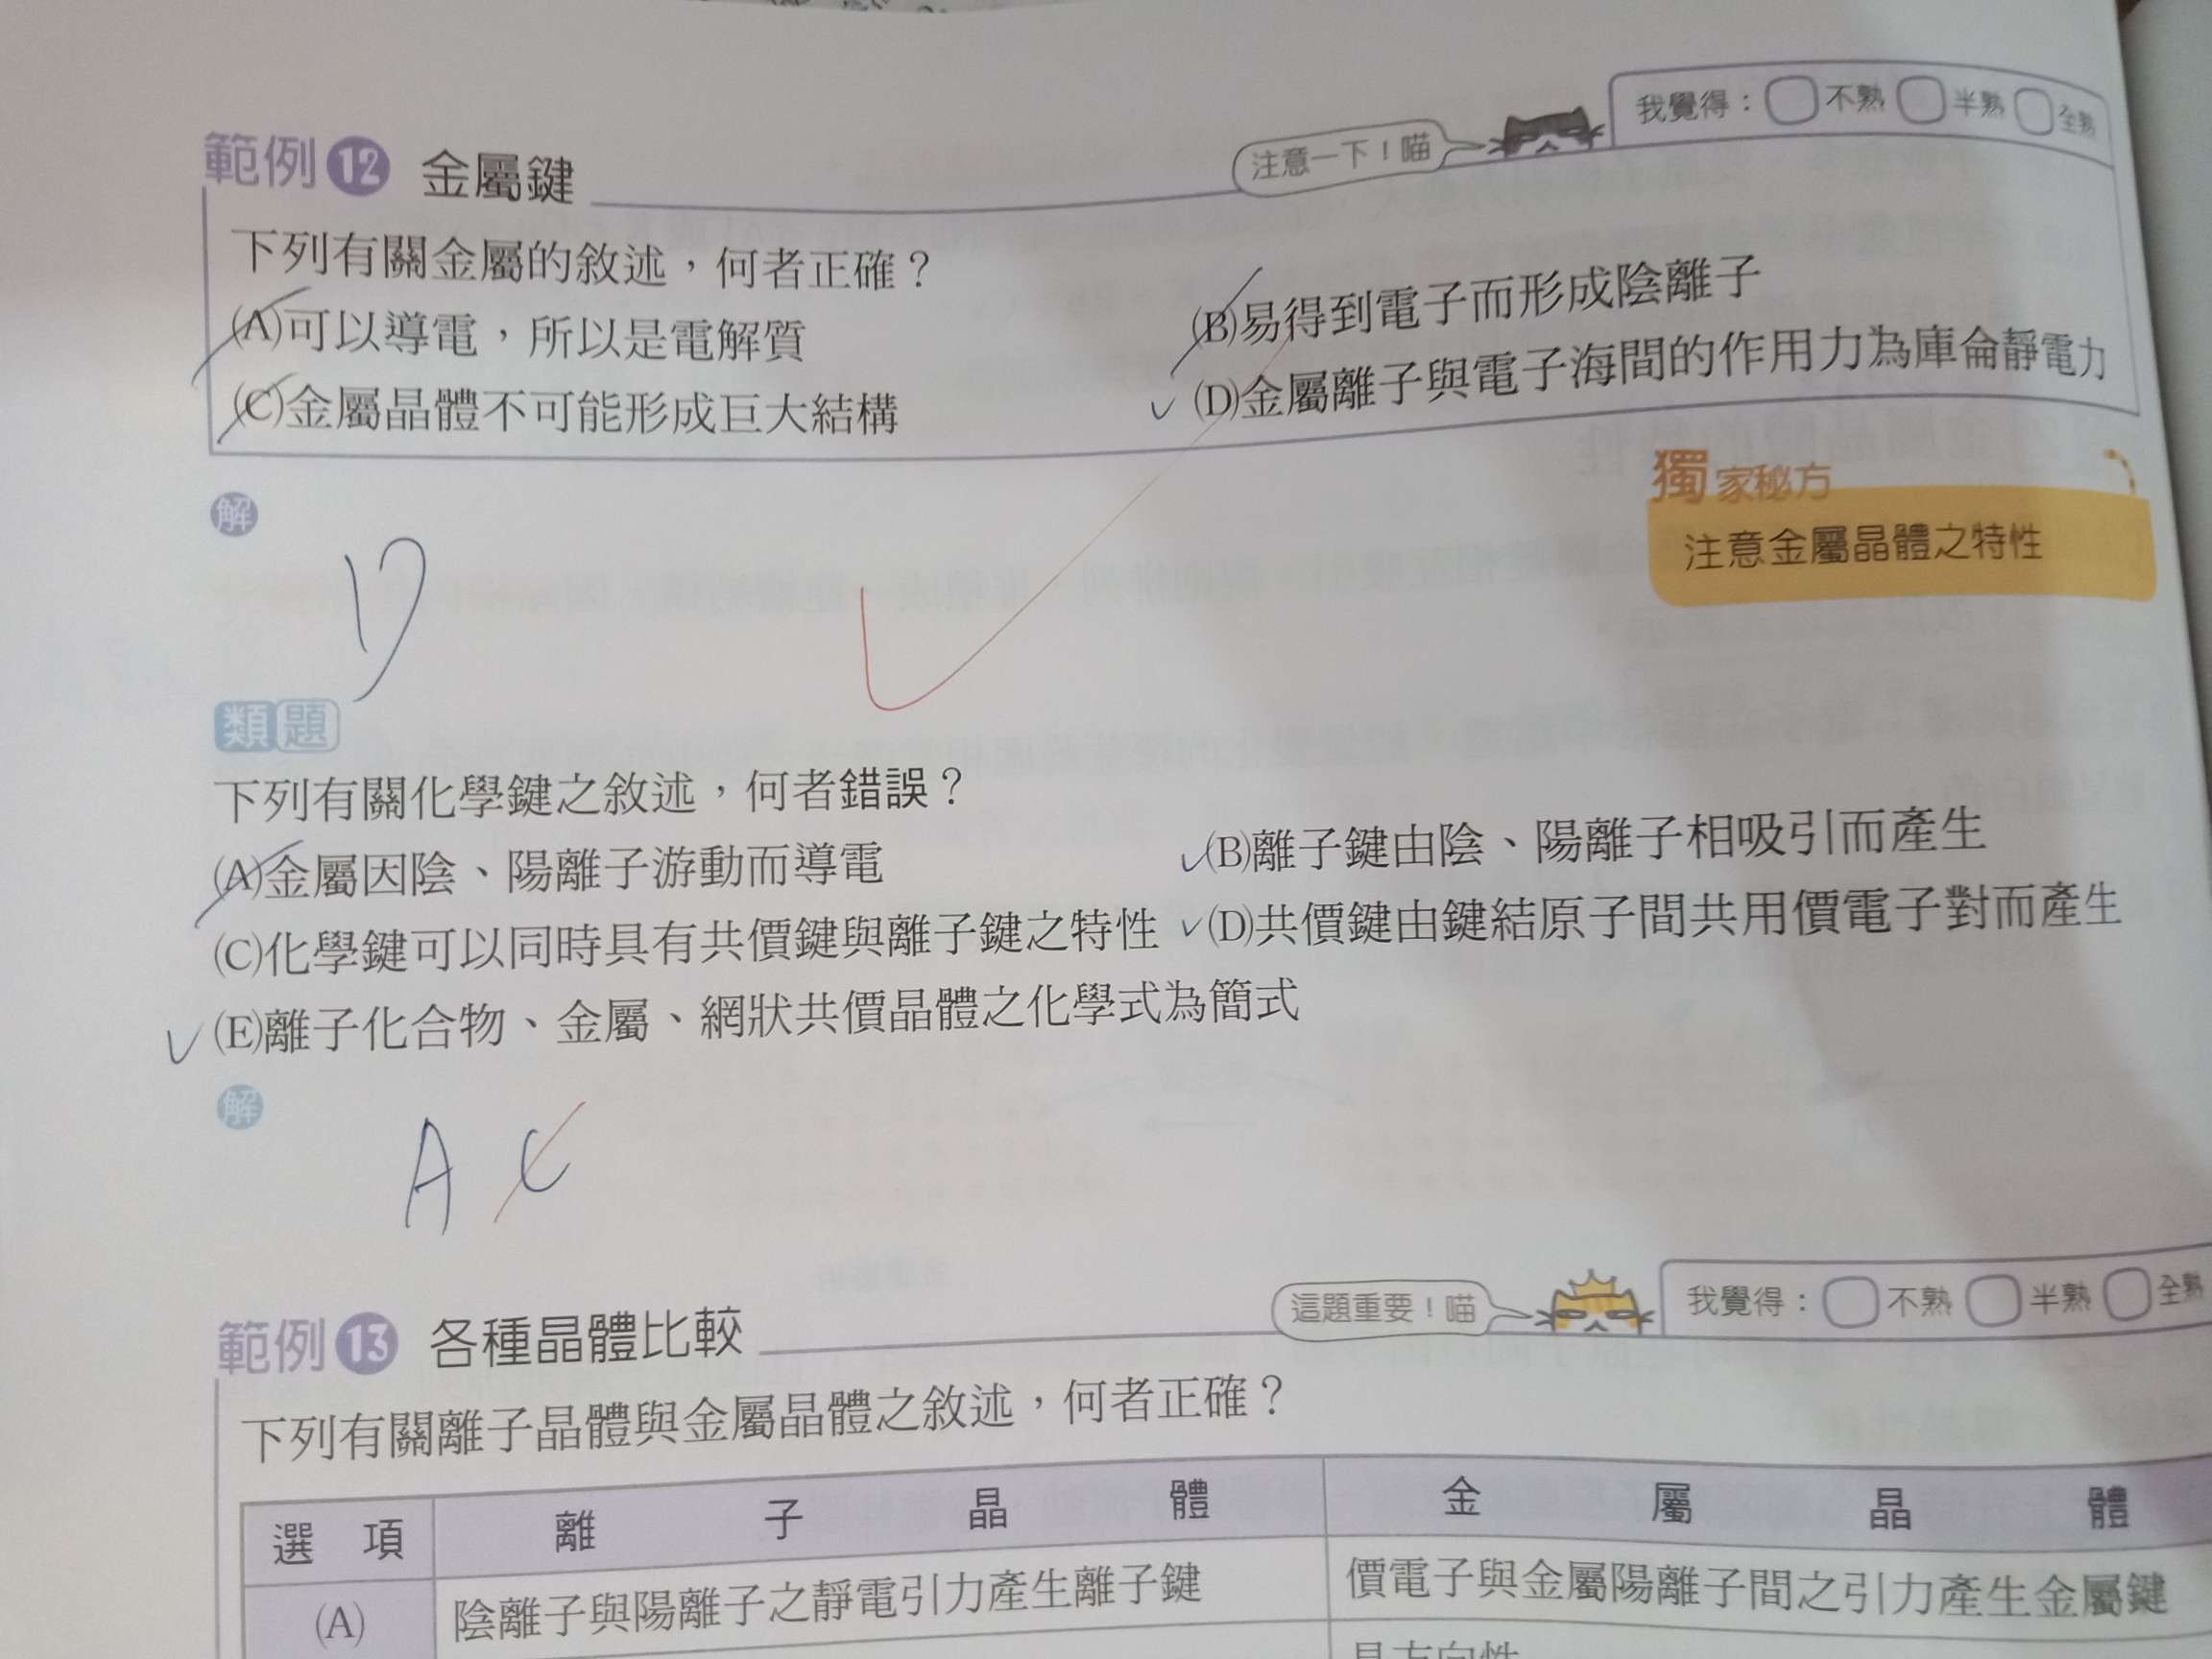 我覺得：不熟 半熟 全熟
注意一下！喵
範例12 金屬鍵
下列有關金屬的敘述，何者正確？
(A)可以導電，所以是電解質
(B)易得到電子而形成陰離子
(C)金屬晶體不可能形成巨大結構
(D)金屬離子與電子海間的作用力為庫侖靜電力
獨家秘方
注意金屬晶體之特性
解
D
類題
下列有關化學鍵之敘述，何者錯誤？
(A)金屬因陰、陽離子游動而導電
(B)離子鍵由陰、陽離子相吸引而產生
(C)化學鍵可以同時具有共價鍵與離子鍵之特性
(D)共價鍵由鍵結原子間共用價電子對而產生
(E)離子化合物、金屬、網狀共價晶體之化學式為簡式
解
A C
這題重要！喵
我覺得：不熟 半熟 全熟
範例13 各種晶體比較
下列有關離子晶體與金屬晶體之敘述，何者正確？
選項 離子晶體 金屬晶體
(A) 陰離子與陽離子之靜電引力產生離子鍵 價電子與金屬陽離子間之引力產生金屬鍵